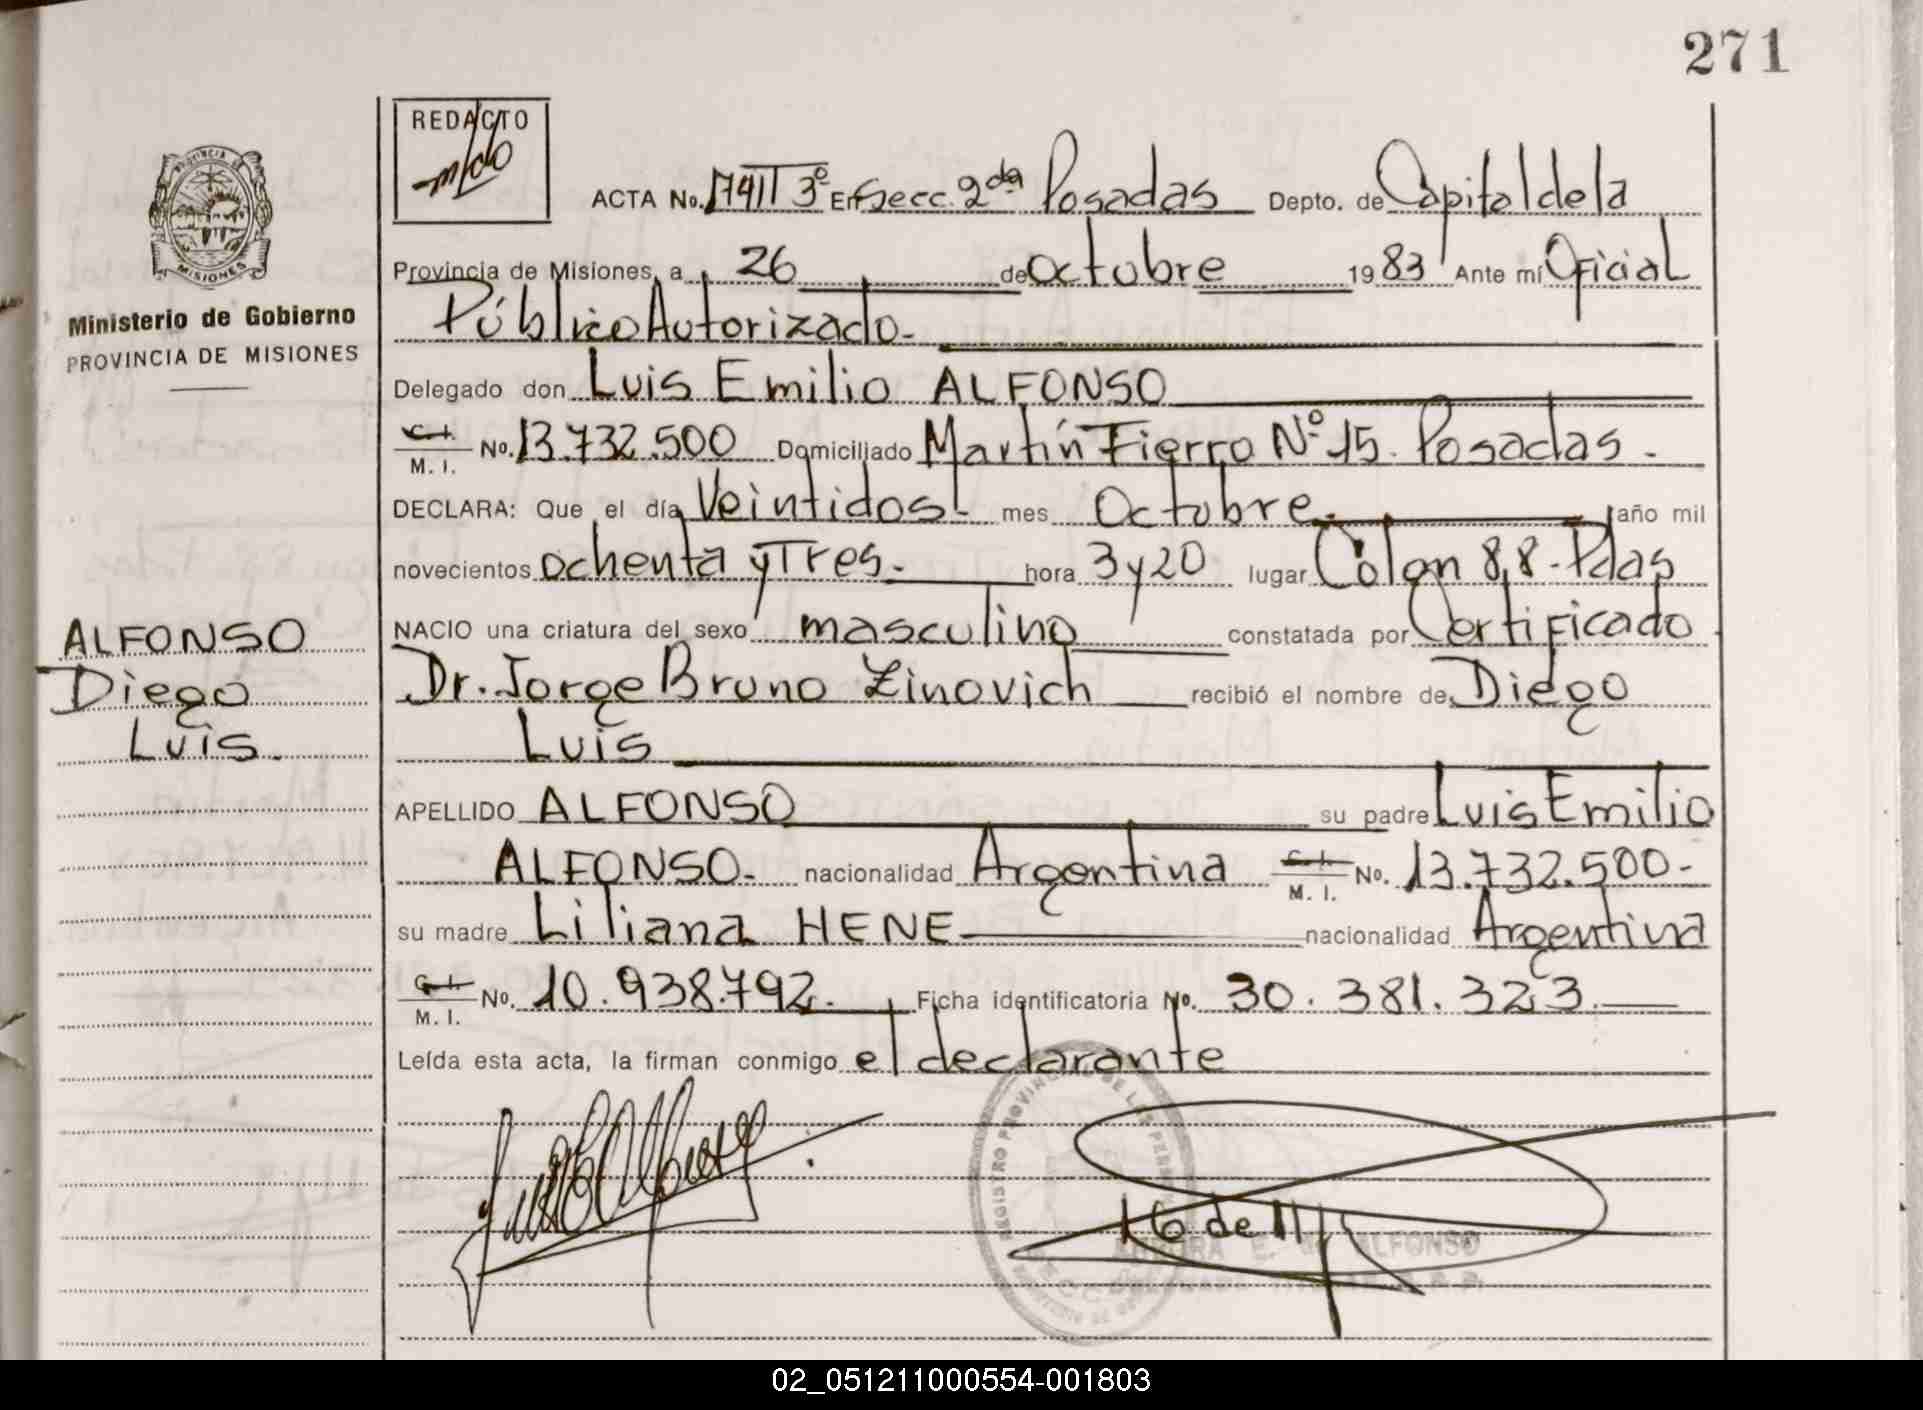 271
REDACTO
PROVINCIA DE
MISIONES
Ministerio de Gobierno
PROVINCIA DE MISIONES
ALFONSO
Diego
Luis.
ACTA No. 3º En Secc. 2da Posadas Depto. de Capital de la
Provincia de Misiones, a 26 de Octubre 1983 Ante mí Oficial
Público Autorizado.-
Delegado don Luis Emilio ALFONSO
C. I. M. I. No. 13.732.500 Domiciliado Martín Fierro Nº 15. Posadas.-
DECLARA: Que el día Veintidos.- mes Octubre.- año mil
novecientos ochenta y Tres.- hora 3 y 20 lugar Colon 8,8.- Pdas
NACIO una criatura del sexo masculino constatada por Certificado
Dr. Jorge Bruno Zinovich recibió el nombre de Diego
Luis
APELLIDO ALFONSO su padre Luis Emilio
ALFONSO.- nacionalidad Argentina C. I. M. I. No. 13.732.500-
su madre Liliana HENE nacionalidad Argentina
C. I. M. I. No. 10.938.792.- Ficha identificatoria No. 30.381.323.-
Leída esta acta, la firman conmigo el declarante
REGISTRO PROVINCIAL DE LAS PERSONAS
16 de
E. de ALFONSO
02_051211000554-001803